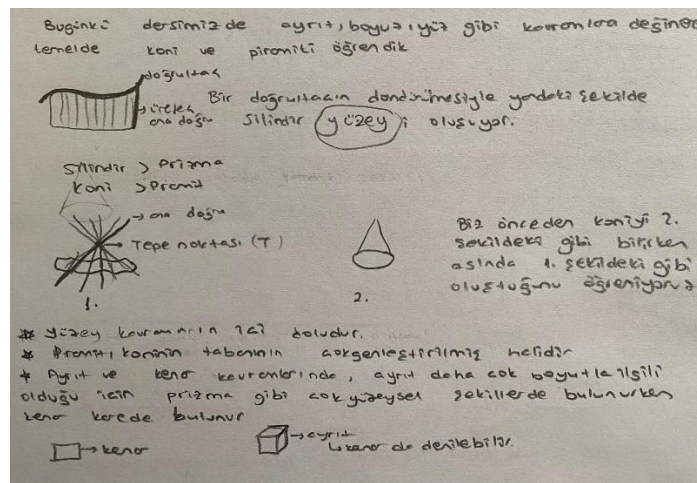 Bugünkü dersimizde ayrıt, boyut, yüz gibi kavramlara değinerek
temelde koni ve piramiti öğrendik
doğrultac
üreteç
ana doğru
Bir doğrultacın döndürülmesiyle yandaki şekilde
silindir yüzeyi oluşuyor.
Silindir > Prizma
Koni > Piramit
ana doğru
Tepe noktası (T)
1.
2.
Biz önceden koniyi 2.
şekildeki gibi bilirken
aslında 1. şekildeki gibi
oluştuğunu öğreniyoruz
* Yüzey kavramının içi doludur.
* Piramit, koninin tabanının çokgenleştirilmiş halidir
* Ayrıt ve kenar kavramlarında, ayrıt daha çok boyutla ilgili
olduğu için prizma gibi çok yüzeysel şekillerde bulunurken
kenar karede bulunur
kenar
ayrıt
kenar da denilebilir.